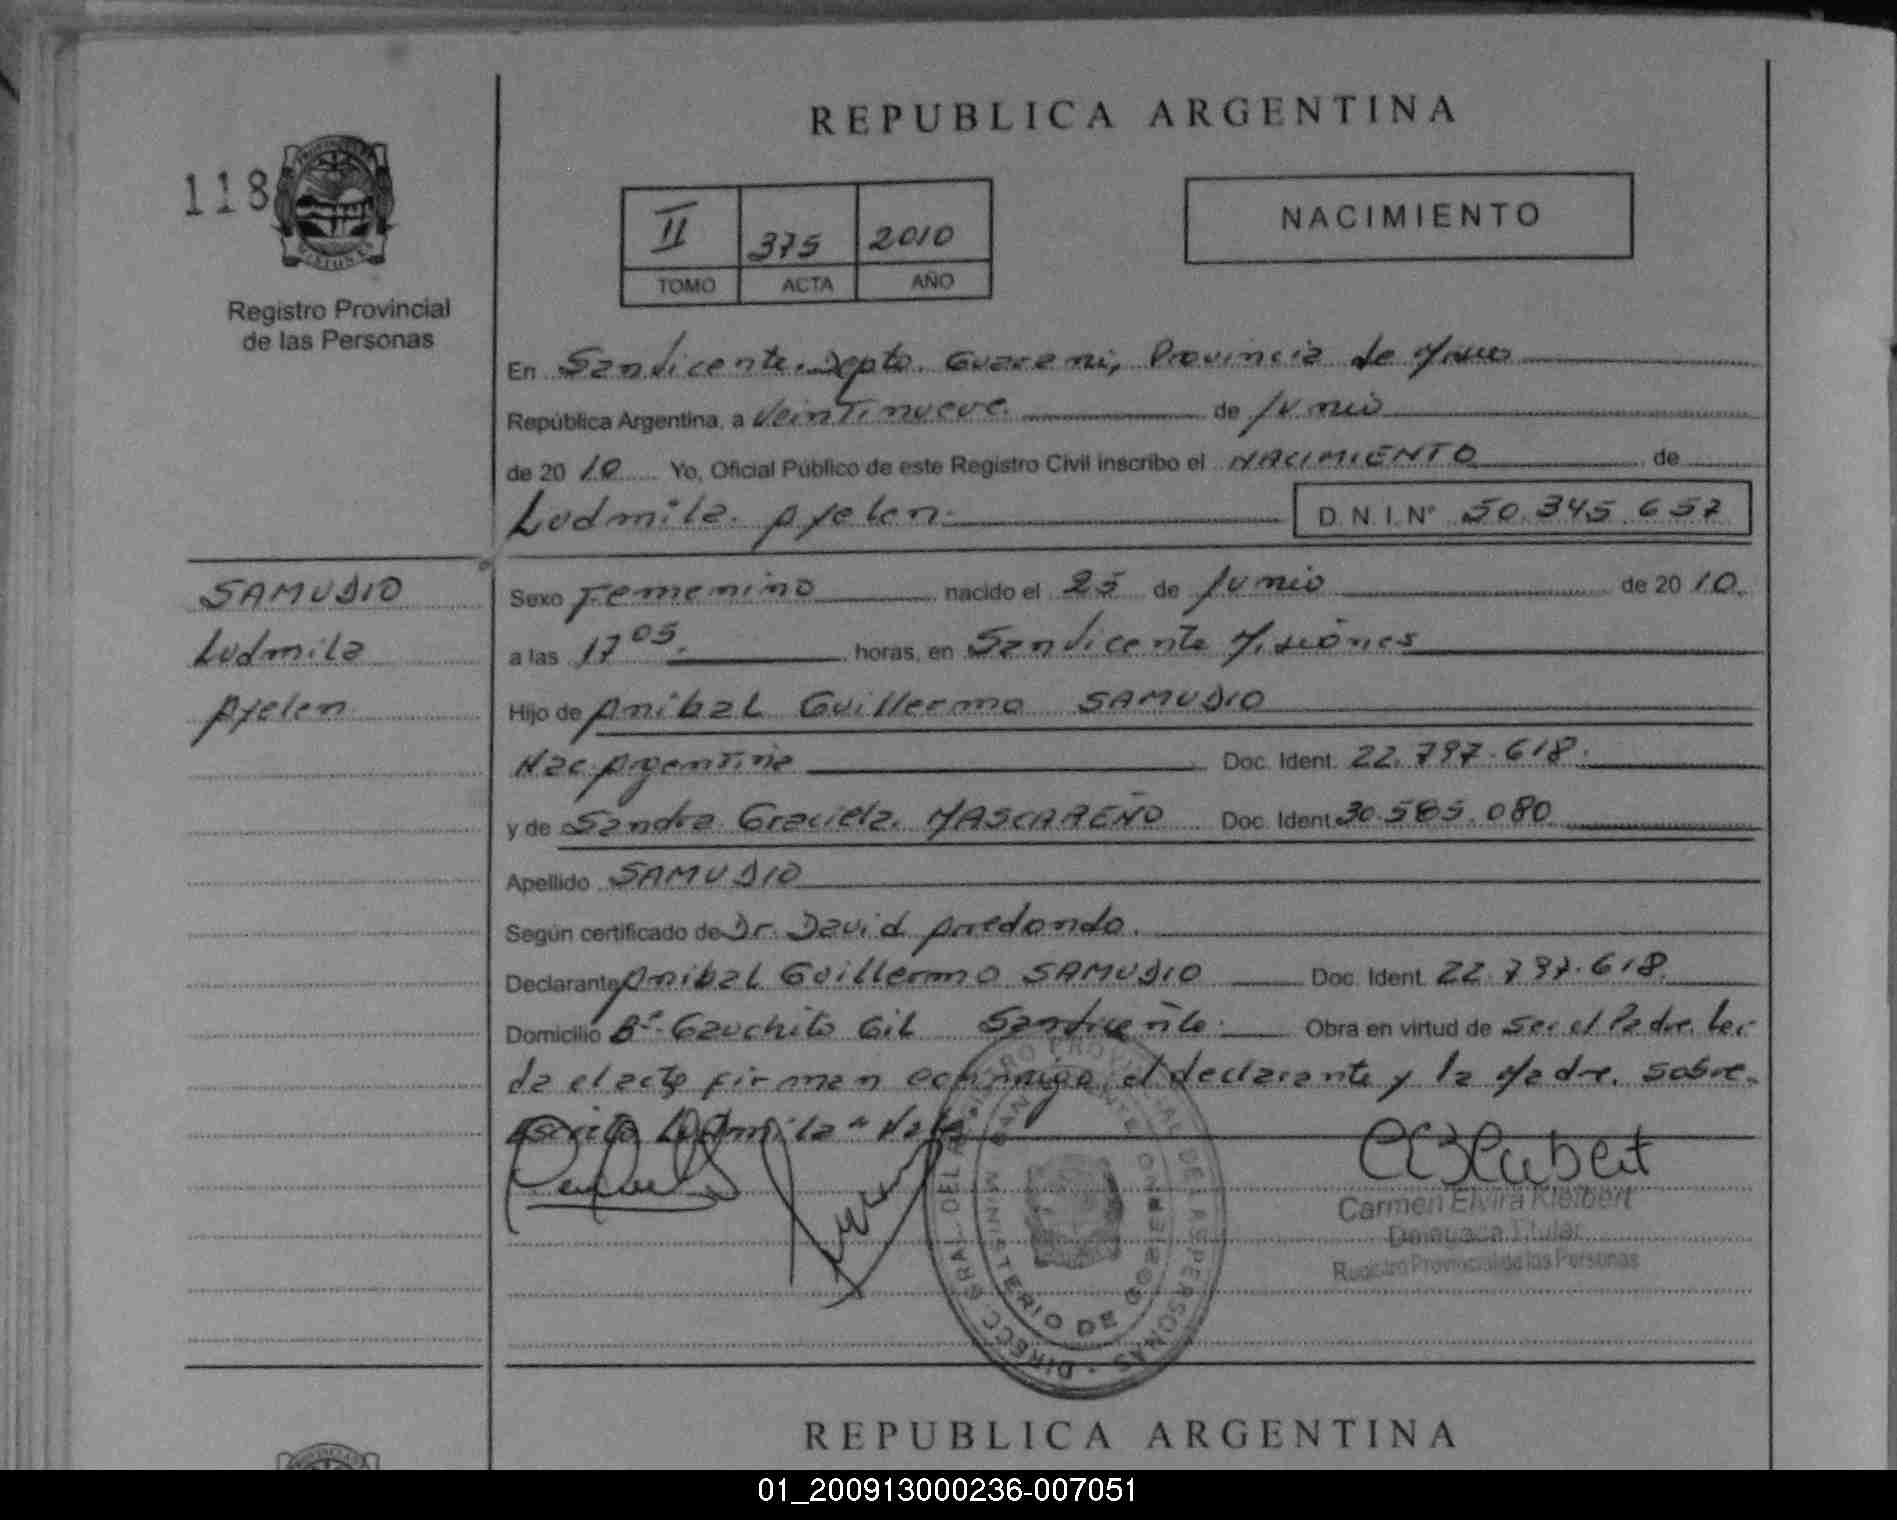 REPUBLICA ARGENTINA
118
II 375 2010
TOMO ACTA AÑO
NACIMIENTO
Registro Provincial
de las Personas
En San Vicente. Depto. Guarani, Provincia de
República Argentina, a Veintinueve. de Junio
de 2010 Yo, Oficial Público de este Registro Civil inscribo el NACIMIENTO de
Ludmila. Ayelen. D.N.I.Nº 50.345.657
SAMUDIO
Ludmila
Ayelen
Sexo Femenino nacido el 25 de Junio de 2010.
a las 17 05. horas, en San Vicente Misiones
Hijo de Anibal Guillermo SAMUDIO
Nac. Argentina Doc. Ident. 22.797.618.
y de Sandra Graciela. MASCAREÑO Doc. Ident. 30.585.080
Apellido SAMUDIO
Según certificado de Dr. David Arredondo.
Declarante Anibal Guillermo SAMUDIO Doc. Ident. 22.797.618
Domicilio Bº. Gauchito Gil San Vicente. Obra en virtud de ser el Padre. Lei
da el acta firman conmigo el declarante y la Madre. Sobre
escrito Ludmila
Carmen Elvira Kleibert
Delegada Titular
Registro Provincial de las Personas
DIRECC. GRAL. DEL REGISTRO PROVINCIAL DE LAS PERSONAS
MINISTERIO DE GOBIERNO
SAN VICENTE
REPUBLICA ARGENTINA
01_200913000236-007051